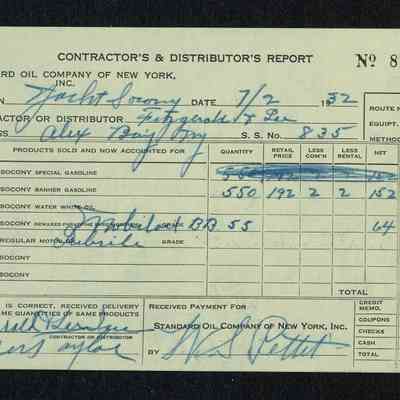 CONTRACTOR'S & DISTRIBUTOR'S REPORT
No 8
ARD OIL COMPANY OF NEW YORK,
INC.
N Yacht Socony DATE 7/2 1932
ROUTE N
ACTOR OR DISTRIBUTOR Fitzgerald & Lee
EQUIPT.
SS Alex Bay, NY S. S. No. 835
METHOD
PRODUCTS SOLD AND NOW ACCOUNTED FOR QUANTITY RETAIL PRICE LESS COM'N LESS RENTAL NET
SOCONY SPECIAL GASOLINE
SOCONY BANNER GASOLINE 550 192 2 2 152
SOCONY WATER WHITE OIL
SOCONY Mobiloil BB 55 64
REGULAR MOTOR GRADE
SOCONY
SOCONY
TOTAL
IS CORRECT, RECEIVED DELIVERY
ME QUANTITIES OF SAME PRODUCTS
RECEIVED PAYMENT FOR
STANDARD OIL COMPANY OF NEW YORK, INC.
CREDIT MEMO.
COUPONS
CHECKS
CASH
TOTAL
CONTRACTOR OR DISTRIBUTOR
Taylor
BY W S Pettet